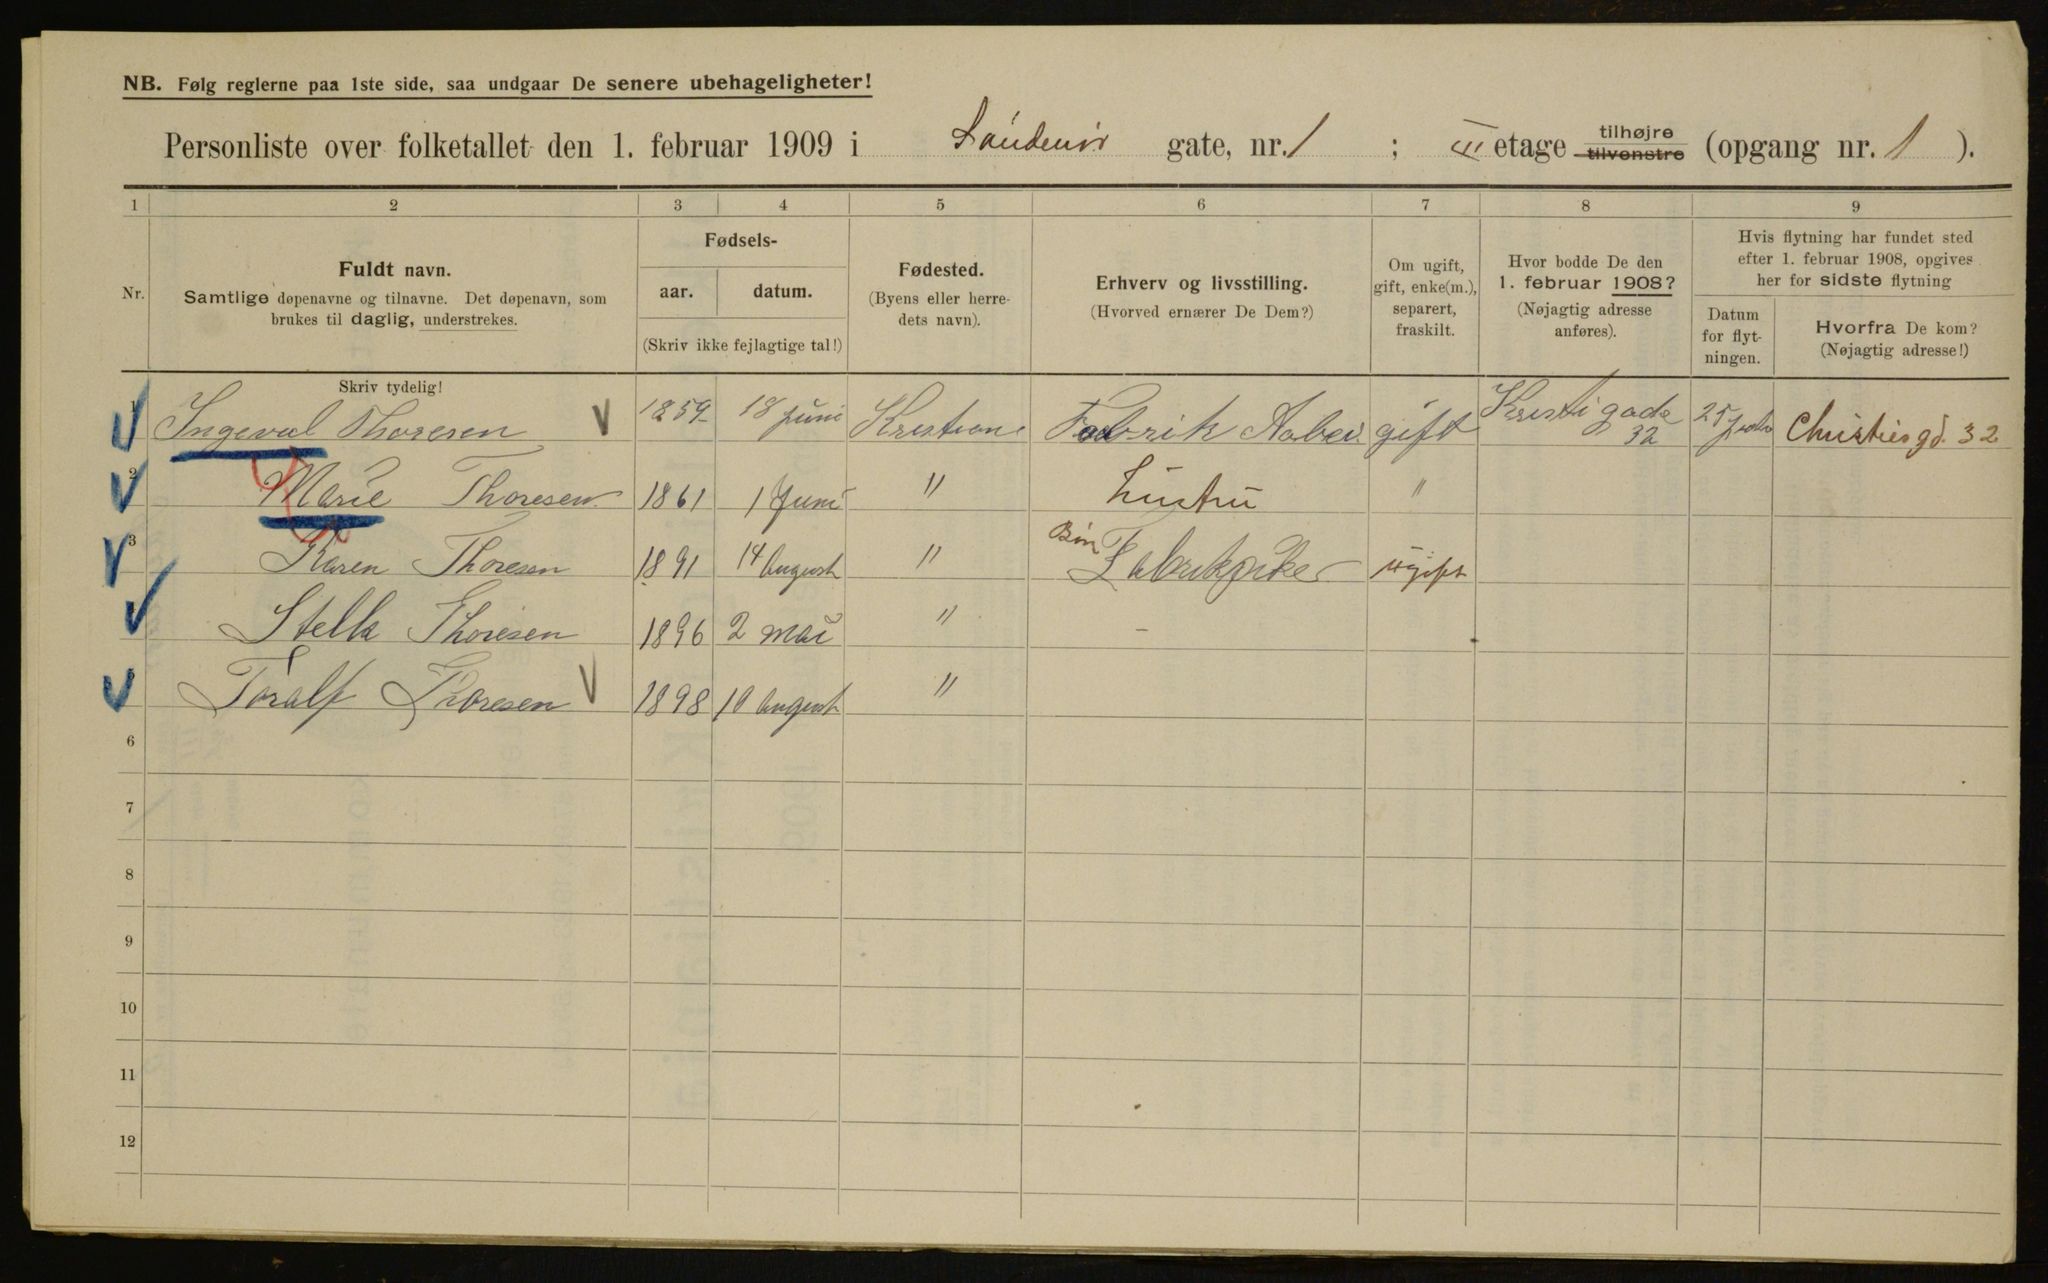 NB. Følg reglerne paa 1ste side, saa undgaar De senere ubehageligheter!
Personliste over folketallet den 1. februar 1909 i gate, nr. 1 ; III etage tilhøjre tilvenstre (opgang nr. 1 ).
1 2 3 4 5 6 7 8 9
Nr.
Fuldt navn.
Samtlige døpenavne og tilnavne. Det døpenavn, som
brukes til daglig, understrekes.
Fødsels-
aar. datum.
(Skriv ikke fejlagtige tal!)
Fødested.
(Byens eller herre-
dets navn).
Erhverv og livsstilling.
(Hvorved ernærer De Dem?)
Om ugift,
gift, enke(m.),
separert,
fraskilt.
Hvor bodde De den
1. februar 1908?
(Nøjagtig adresse
anføres).
Hvis flytning har fundet sted
efter 1. februar 1908, opgives
her for sidste flytning
Datum
for flyt-
ningen.
Hvorfra De kom?
(Nøjagtig adresse!)
Skriv tydelig!
1 Ingeval Thoresen 1859 18 Juni Kristian Fabrik Aabei gift Kristi gade 32 25 Christies gd. 32
2 Marie Thoresen 1861 1 Juni " Hustru "
3 Karen Thoresen 1891 14 August " Fabrikpike ugift
Stella Thoresen 1896 2 mai " -
Toralf Thoresen 1898 10 August "
6
7
8
9
10
11
12